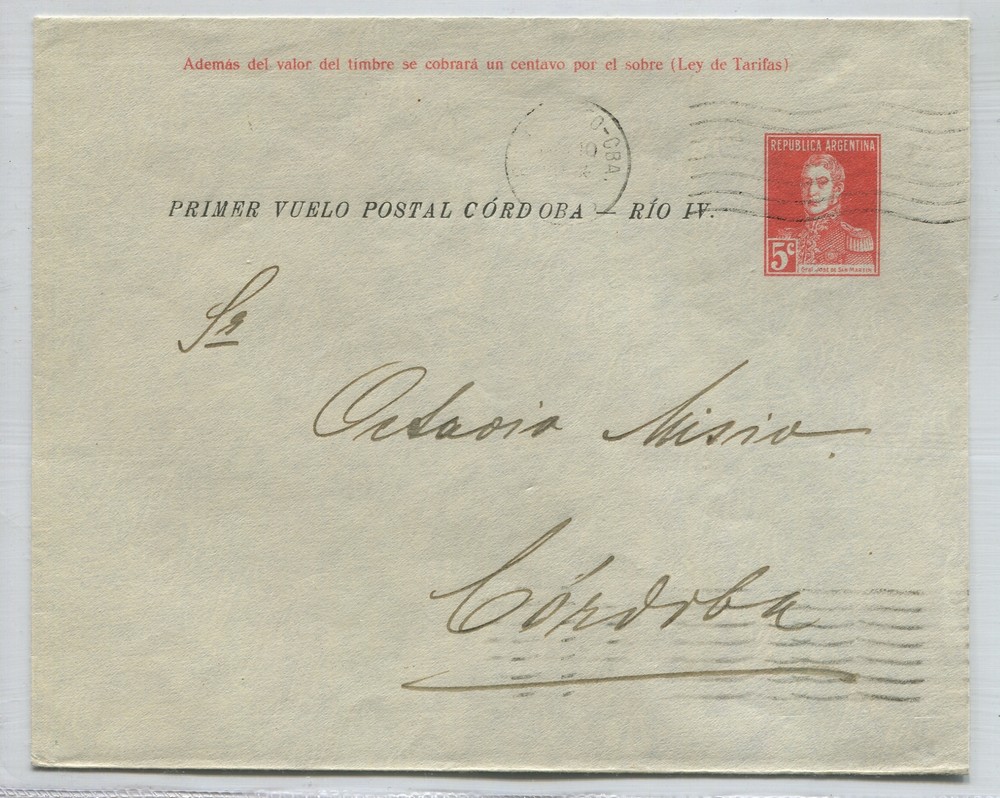 Además del valor del timbre se cobrará un centavo por el sobre (Ley de Tarifas)
TO-CBA.
REPUBLICA ARGENTINA
5c
Gral. José de San Martin
PRIMER VUELO POSTAL CÓRDOBA — RÍO IV.
Sr
Octavio Misio.
Córdoba